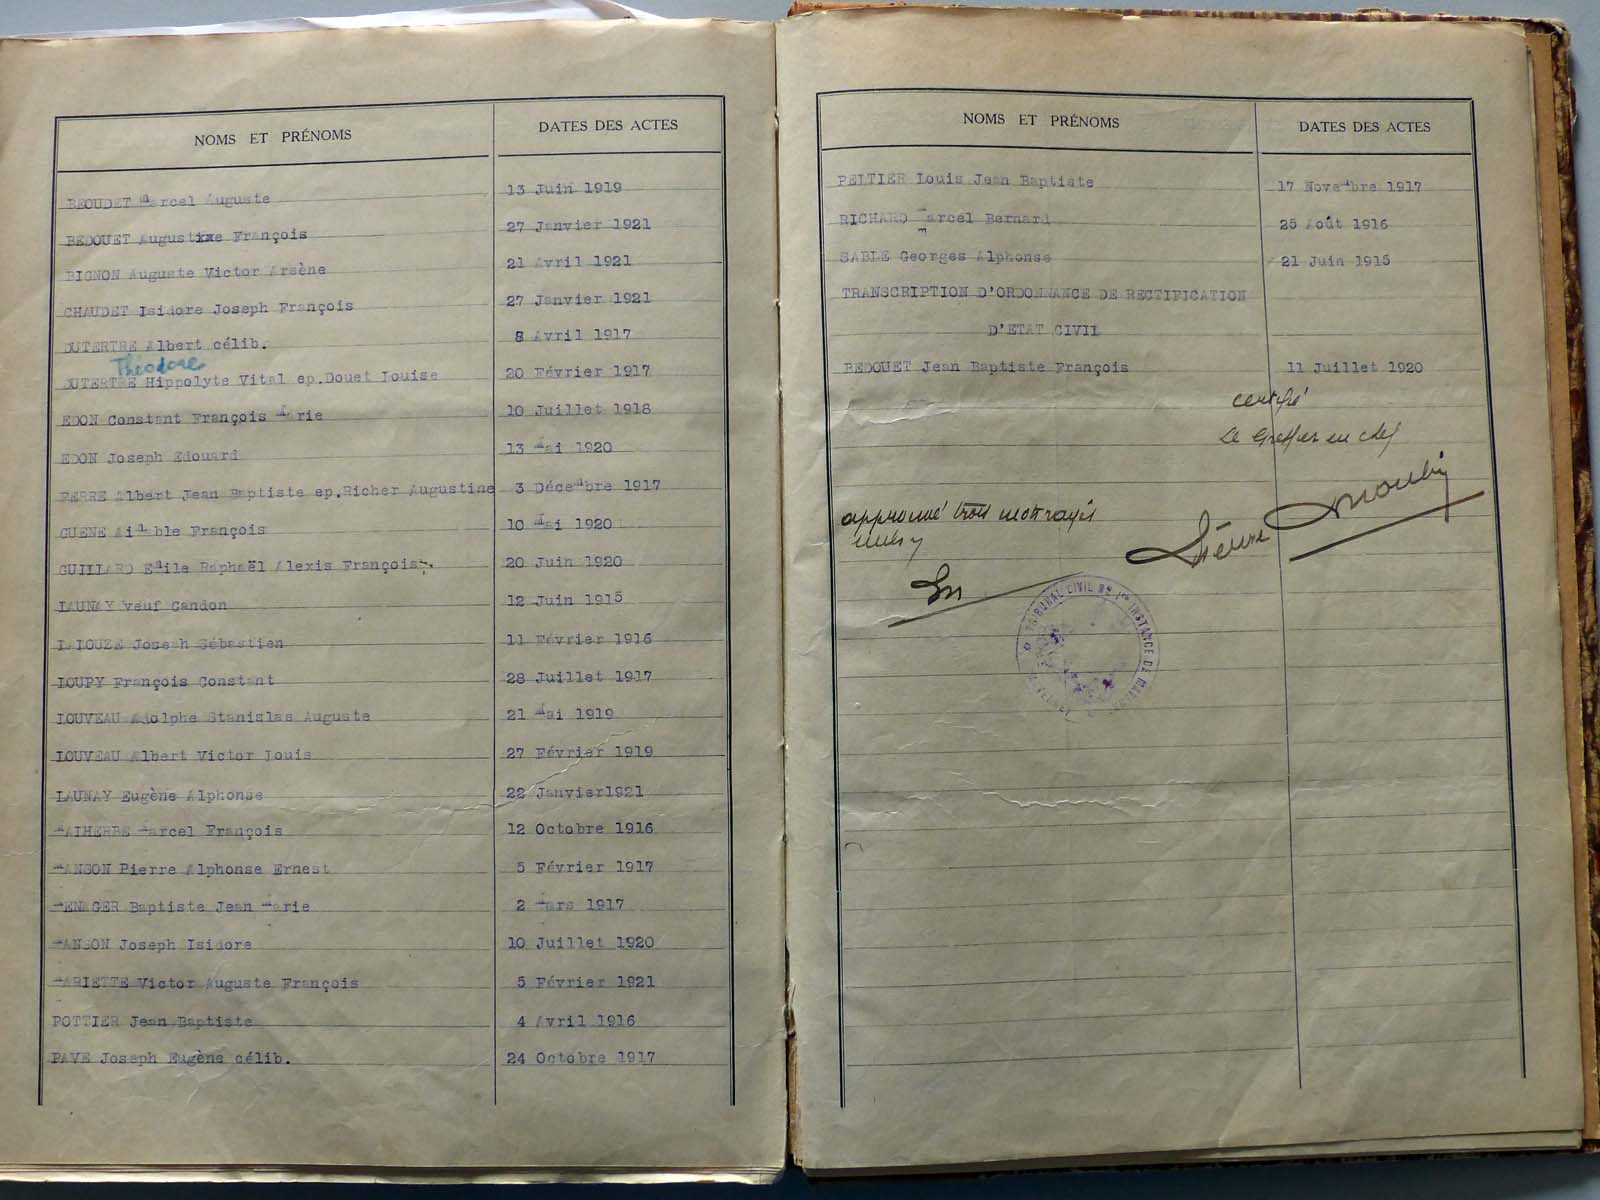 NOMS ET PRÉNOMS DATES DES ACTES
BEOUDET Marcel Auguste 13 Juin 1919
BEDOUET Augustine François 27 Janvier 1921
BIGNON Auguste Victor Arsène 21 Avril 1921
CHAUDET Isidore Joseph François 27 Janvier 1921
DUTERTRE Albert célib. 8 Avril 1917
Théodore
DUTERTRE Hippolyte Vital ep.Douet Louise 20 Février 1917
EDON Constant François Marie 10 Juillet 1918
EDON Joseph Edouard 13 Mai 1920
FERRE Albert Jean Baptiste ep.Richer Augustine 3 Décembre 1917
GUENE Aimable François 10 Mai 1920
GUILLARD Emile Raphaël Alexis François 20 Juin 1920
LAUNAY veuf Gandon 12 Juin 1915
LALOUZE Joseph Sébastien 11 Février 1916
LOUPY François Constant 28 Juillet 1917
LOUVEAU Adolphe Stanislas Auguste 21 Mai 1919
LOUVEAU Albert Victor Louis 27 Février 1919
LAUNAY Eugène Alphonse 22 Janvier1921
MALHERBE Marcel François 12 Octobre 1916
MANSON Pierre Alphonse Ernest 5 Février 1917
MENAGER Baptiste Jean Marie 2 Mars 1917
MANSON Joseph Isidore 10 Juillet 1920
MARIETTE Victor Auguste François 5 Février 1921
POTTIER Jean Baptiste 4 Avril 1916
PAVE Joseph Eugène célib. 24 Octobre 1917
NOMS ET PRÉNOMS DATES DES ACTES
PELTIER Louis Jean Baptiste 17 Novembre 1917
RICHARD Marcel Bernard 25 Août 1916
SABLE Georges Alphonse 21 Juin 1915
TRANSCRIPTION D'ORDONNANCE DE RECTIFICATION
D'ETAT CIVIL
BEDOUET Jean Baptiste François 11 Juillet 1920
certifié
Le Greffier en chef
approuvé trois mots rayés
nuls
TRIBUNAL CIVIL DE 1re INSTANCE DE